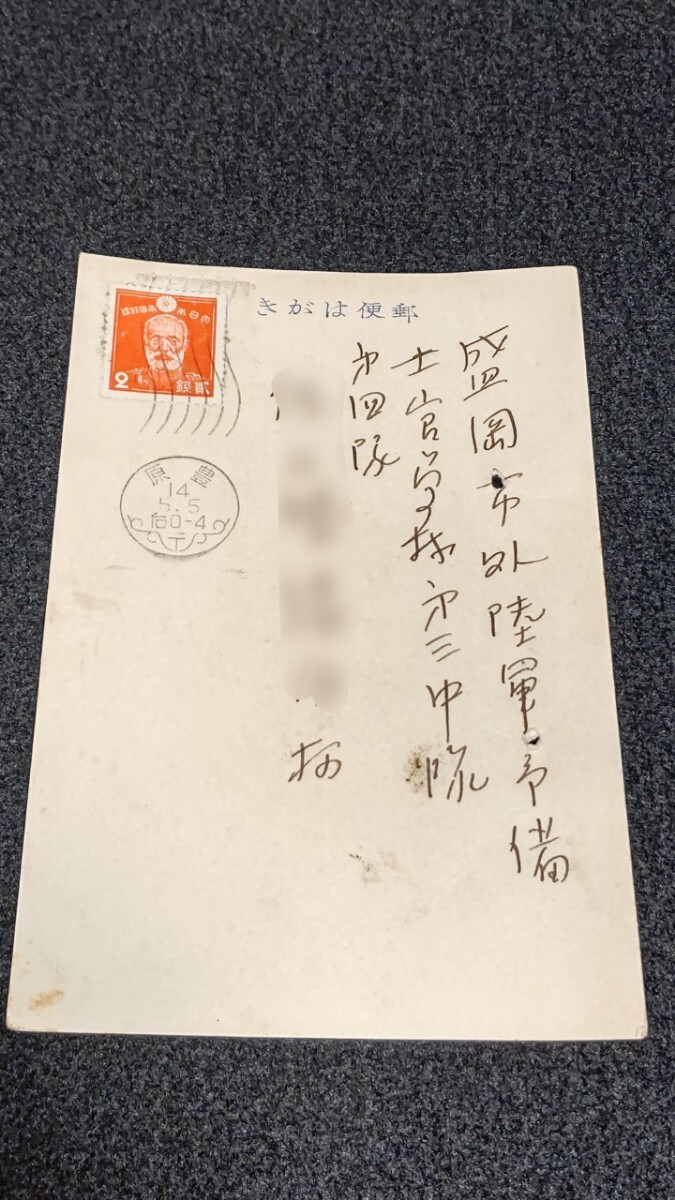 きがは便郵
大日本帝國郵便
2
貳銭
豊原
14
5.5
后0-4
盛岡市外陸軍予備
士官学校第三中隊
第四隊
様